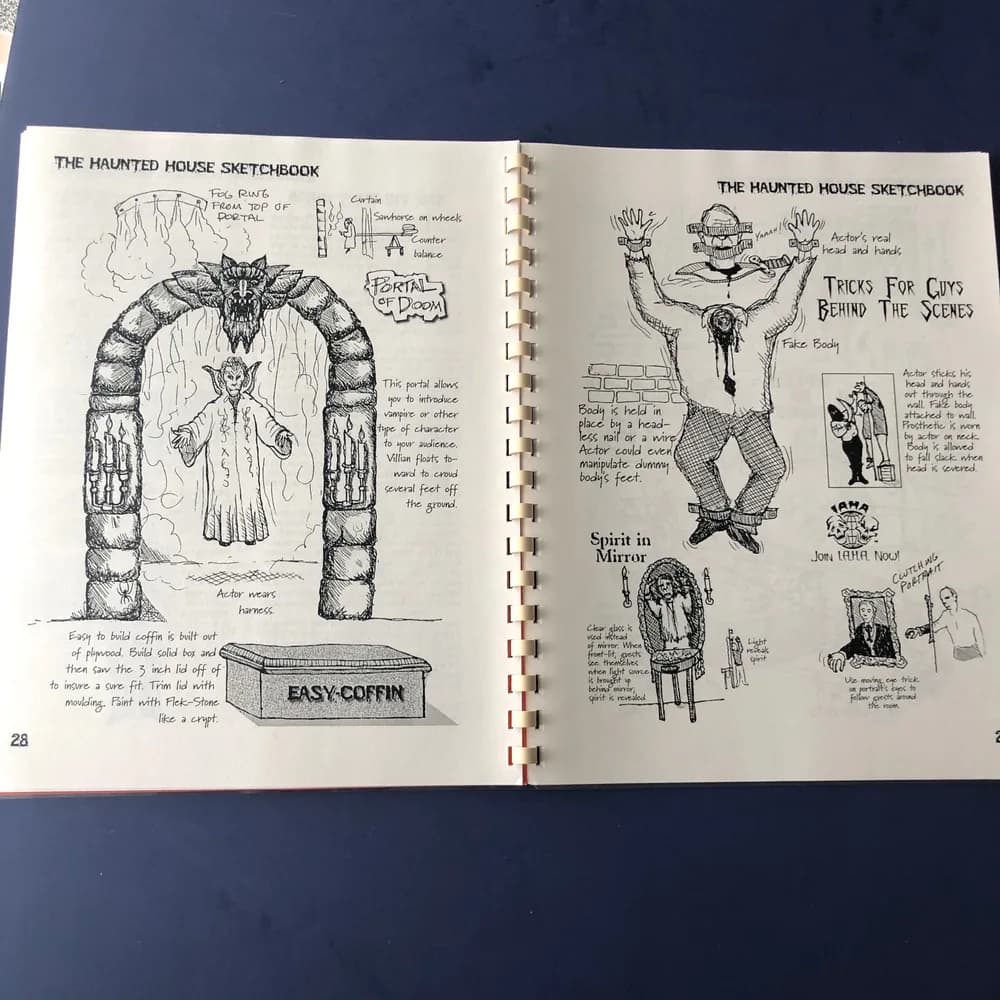 THE HAUNTED HOUSE SKETCHBOOK
FOG RING
FROM TOP OF
PORTAL
Curtain
Sawhorse on wheels
Counter
balance
PORTAL
OF DOOM
This portal allows
you to introduce
vampire or other
type of character
to your audience.
Villian floats to-
ward to croud
several feet off
the ground.
Actor wears
harness.
Easy to build coffin is built out
of plywood. Build solid box and
then saw the 3 inch lid off of
to insure a sure fit. Trim lid with
moulding. Paint with Flek-Stone
like a crypt.
EASY-COFFIN
28
THE HAUNTED HOUSE SKETCHBOOK
Actor's real
head and hands
TRICKS FOR GUYS
BEHIND THE SCENES
Fake Body
Body is held in
place by a head-
less nail or a wire
Actor could even
manipulate dummy
body's feet.
Actor sticks his
head and hands
out through the
wall. Fake body
attached to wall.
Prosthetic is worn
by actor on neck.
Body is allowed
to fall slack when
head is severed.
IAHA
JOIN I.A.H.A. NOW!
Spirit in
Mirror
Clear glass is
used instead
of mirror. When
front-lit, guests
see themselves
when light source
is brought up
behind mirror,
spirit is revealed.
Light
reveals
spirit
CLUTCHING
PORTRAIT
Use moving eye trick
on portrait's eyes to
follow guests around
the room.
2